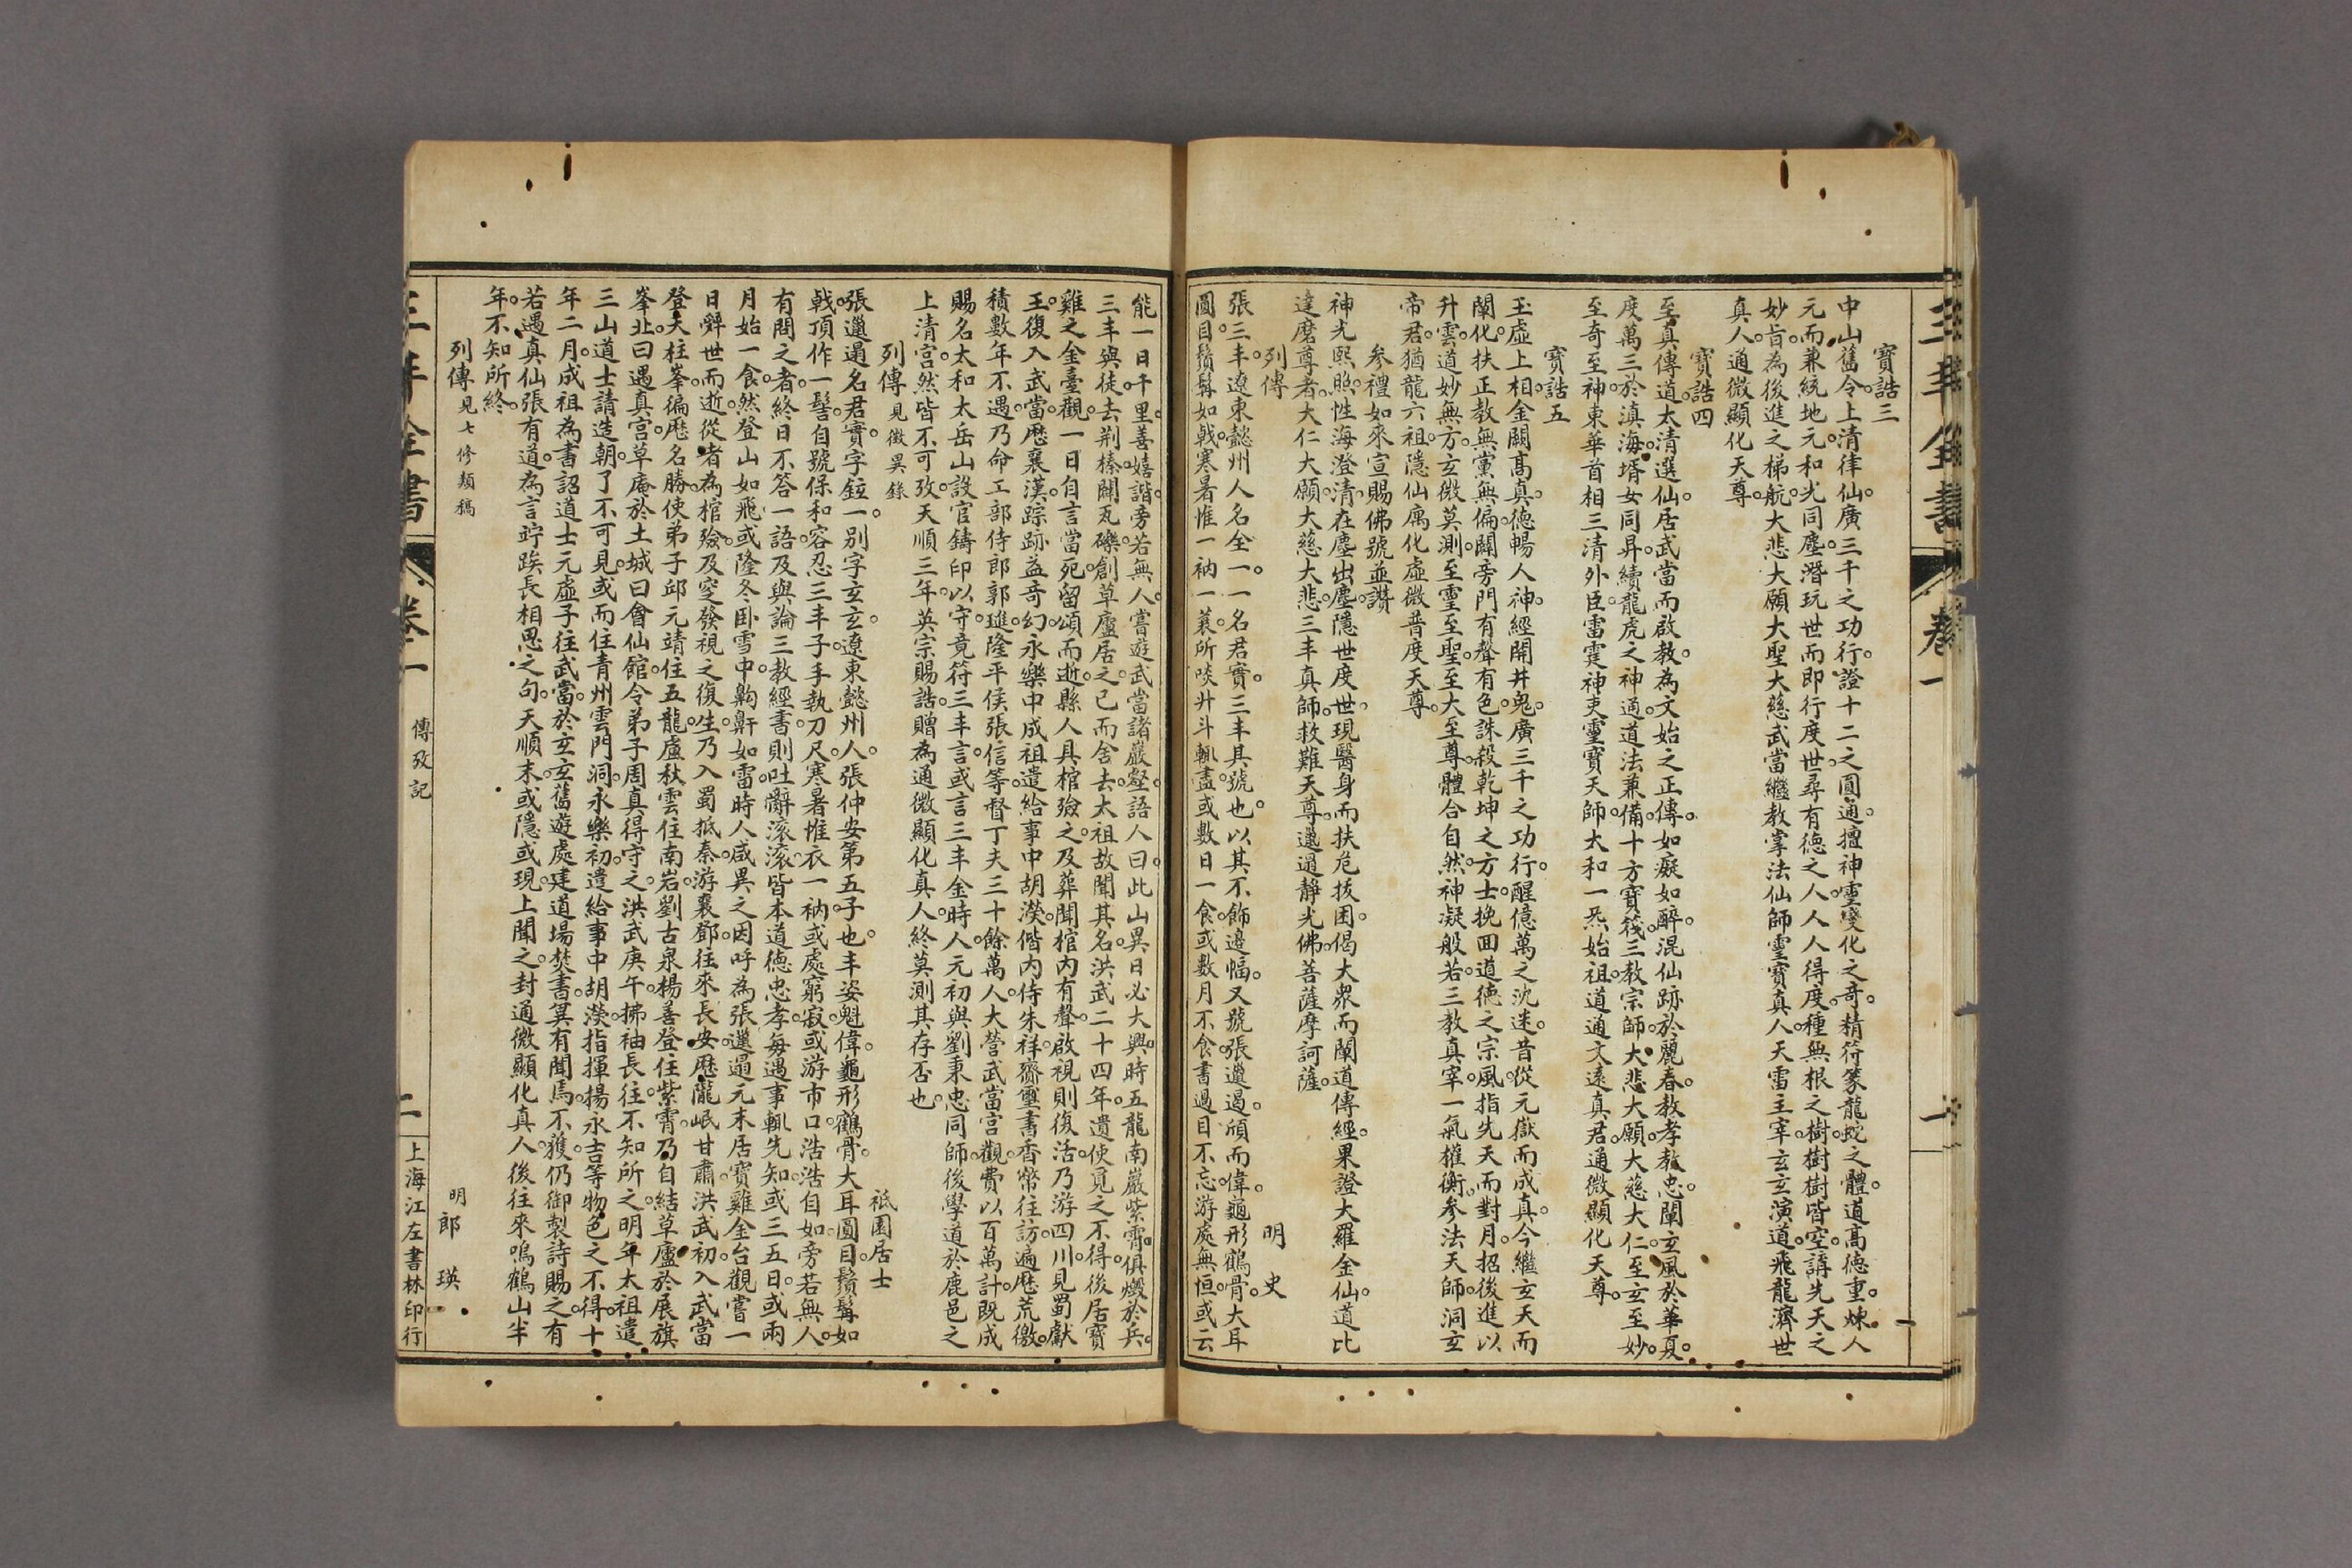 三丰全書
卷一
一
寶誥三
中山舊令。上清律仙。廣三千之功行。證十二之圓通。擅神靈變化之奇。精符篆龍蛇之體。道高德重。煉人
元而兼統地元。和光同塵。潛玩世而即行度世。尋有德之人。人人得度。種無根之樹。樹樹皆空。講先天之
妙旨。為後進之梯航。大悲大願大聖大慈武當繼教掌法仙師靈寶真人。天雷主宰。玄玄演道。飛龍濟世
真人。通微顯化天尊。
寶誥四
至真傳道。太清選仙。居武當而啟教。為文始之正傳。如癡如醉。混仙跡於麗春。教孝教忠。闡玄風於華夏。
度萬三於滇海。壻女同昇。續龍虎之神通。道法兼備。十方寶筏。三教宗師。大悲大願。大慈大仁。至玄至妙。
至奇至神。東華首相。三清外臣。雷霆神吏。靈寶天師。太和一炁始祖。道通文遠真君。通微顯化天尊。
寶誥五
玉虛上相。金闕高真。德暢人神。經開井鬼。廣三千之功行。醒億萬之沈迷。昔從元嶽而成真。今繼玄天而
闡化。扶正教。無黨無偏。闢旁門。有聲有色。誅殺乾坤之方士。挽回道德之宗風。指先天而對月。招後進以
升雲。道妙無方。玄微莫測。至靈至聖。至大至尊。體合自然。神凝般若。三教真宰。一氣權衡。參法天師。洞玄
帝君。猶龍六祖。隱仙寓化虛微普度天尊。
參禮如來宣賜佛號並讚
神光熙照。性海澄清。在塵出塵。隱世度世。現醫身而扶危拔困。偈大眾而闡道傳經。果證大羅金仙。道比
達磨尊者。大仁大願。大慈大悲。三丰真師。救難天尊。邋遢靜光佛。菩薩摩訶薩。
列傳
明史
張三丰。遼東懿州人。名全一。一名君寶。三丰其號也。以其不飾邊幅。又號張邋遢。頎而偉。龜形鶴骨。大耳
圓目。鬚髯如戟。寒暑惟一衲一蓑。所啖升斗輒盡。或數日一食。或數月不食。書過目不忘。游處無恒。或云
能一日千里。善嬉諧。旁若無人。嘗遊武當諸巖壑。語人曰。此山異日必大興。時五龍南巖紫霄。俱燬於兵。
三丰與徒。去荊榛。闢瓦礫。創草廬居之。已而舍去。太祖故聞其名。洪武二十四年。遣使覓之不得。後居寶
雞之金臺觀。一日自言當死。留頌而逝。縣人具棺殮之。及葬。聞棺內有聲。啟視則復活。乃游四川。見蜀獻
王。復入武當。歷襄漢。踪跡益奇幻。永樂中。成祖遣給事中胡濙。偕內侍朱祥。齎璽書香幣往訪。遍歷荒徼。
積數年不遇。乃命工部侍郎郭璡。隆平侯張信等。督丁夫三十餘萬人。大營武當宮觀。費以百萬計。既成
賜名太和太岳山。設官鑄印以守。竟符三丰言。或言三丰金時人。元初與劉秉忠同師。後學道於鹿邑之
上清宮。然皆不可攷。天順三年。英宗賜誥。贈為通微顯化真人。終莫測其存否也。
列傳見微異錄
祗園居士
張邋遢名君寶。字鉉一。別字玄玄。遼東懿州人。張仲安第五子也。丰姿魁偉。龜形鶴骨。大耳圓目。鬚髯如
戟。頂作一髻。自號保和容忍三丰子。手執刀尺。寒暑惟衣一衲。或處窮寂。或游市口。浩浩自如。旁若無人。
有問之者。終日不答一語。及與論三教經書。則吐辭滾滾。皆本道德忠孝。每遇事輒先知。或三五日。或兩
月始一食。然登山如飛。或隆冬卧雪中。齁鼾如雷。時人咸異之。因呼為張邋遢。元末居寶雞金台觀。嘗一
日辭世而逝。從者為棺殮。及窆發視之。復生。乃入蜀抵秦。游襄鄧。往來長安。歷隴岷甘肅。洪武初。入武當
登天柱峯。徧歷名勝。使弟子邱元靖住五龍。盧秋雲住南岩。劉古泉楊善登住紫霄。乃自結草廬於展旗
峯北。曰遇真宮。草庵於土城。曰會仙館。令弟子周真得守之。洪武庚午。拂袖長往。不知所之。明年太祖遣
三山道士請造朝。了不可見。或而住青州雲門洞。永樂初。遣給事中胡濙。指揮揚永吉等物色之不得。十
年二月。成祖為書詔道士元虛子往武當。於玄玄舊遊處。建道場焚書。冥有聞焉。不獲。仍御製詩賜之。有
若遇真仙張有道。為言竚踐長相思之句。天順末。或隱或現。上聞之。封通微顯化真人。後往來鳴鶴山半
年。不知所終。
列傳見七修類稿
明郎瑛
三丰全書
卷一
傳攷記
二
上海江左書林印行